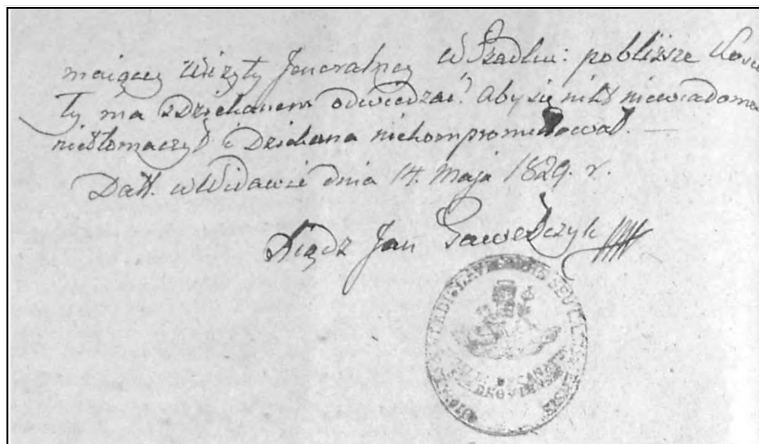 maiącey Wizyty Jeneralney w Szadku: pobliższe Kościo
ły ma z Dziekanem odwiedzać. Aby się nikt niewiadomo
nietłomaczył i Dziekana niekompromitował. —
Datt. w Widawie dnia 14. Maja 1829. r.
Xiądz Jan Gawełczyk